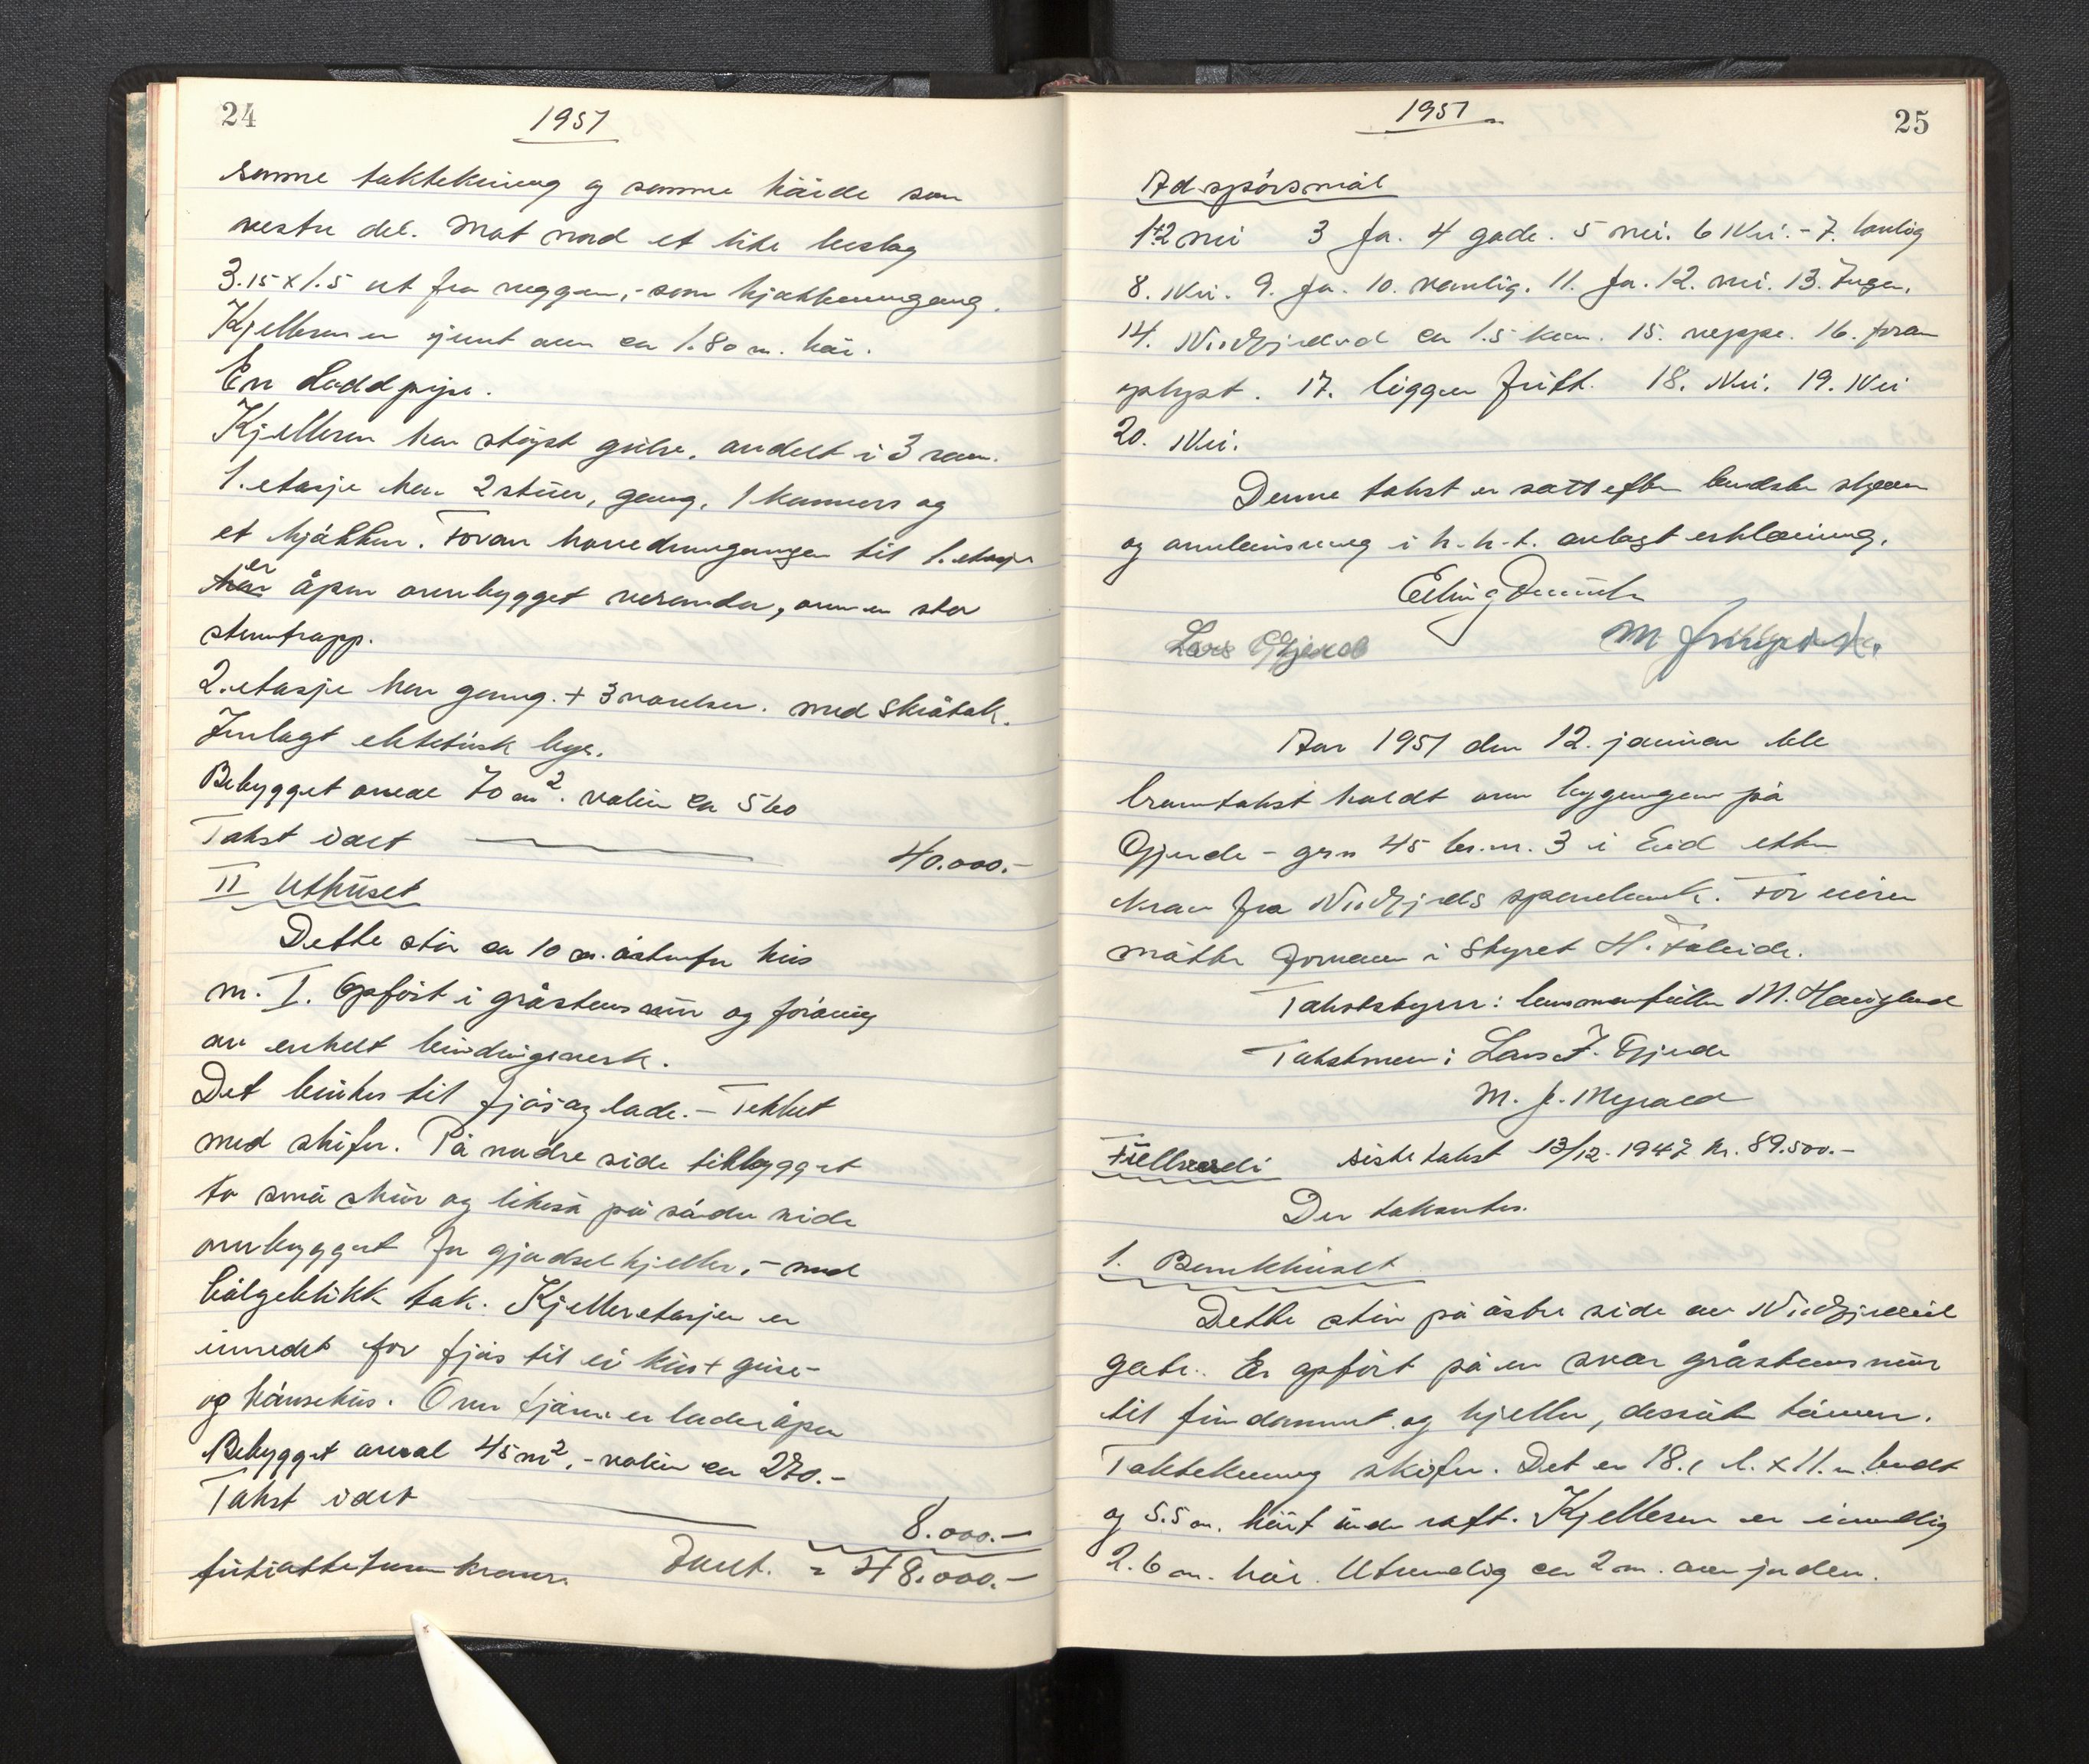 24
1951
samme taktekning og samme höide som
vestre del. Mot nord et lite beslag
3.15 x 1.5 ut fra veggen, - som kjökkeninngang.
Kjelleren er jevnt over ca 1.80 m. höi.
En loddpipe.
Kjelleren har stöpt gulv, avdelt i 3 rom.
1. etasje har 2 stuer, gang, 1 kammers og
et kjökken. Foran hovedinngangen til 1. etasje
er åpen overbygget veranda, over en stor
stentrapp.
2. etasje har gang. + 3 værelser. med skråtak.
Innlagt elektrisk lys.
Bebygget areal 70 m². volum ca 560
Takst idet 40.000.-
II Uthuset
Dette står ca 10 m. östenfor hus
nr. I. Opfört i gråstensmur og foröврig
av enkelt bindingsverk.
Det brukes til fjös og lade. - Tekket
med skifer. På nordre side tilbygget
to små skur og likeså på söndre side
overbygget for gjödselkjeller, - med
bölgeblikk tak. Kjelleretasjen er
innredet for fjös til ei ku + grise-
og hönsehus. Over fjösen er laden åpen
Bebygget areal 45 m², - volum ca 270.-
Takst idet
8.000.-
förtiåttetusen kroner. = 48.000.-
1951
25
Ad spörsmål
1+2 nei 3 Ja. 4 gode. 5 nei. 6 Nei. - 7. vanlig
8. Nei. 9. Ja. 10. vanlig. 11. Ja. 12. nei. 13. Ingen.
14. Nordfjordeid ca 1.5 km. 15. neppe. 16. foran
oplyst. 17. ligger fritt. 18. Nei. 19. Nei
20. Nei.
Denne takst er satt efter beste skjönn
og overbevisning i h.h.t. avlagt erklæring.
Lars Gjerde
Aar 1951 den 12. januar ble
branntakst holdt over bygningen på
Gjerde - grn 45 br.nr. 3 i Eid etter
krav fra Nordfjords sparebank. For eieren
mötte formann i styret H. Faleide.
Takstbestyrer: lensmannfullm. M. Haugland
Takstmenn: Lars J. Gjerde
M. J. Myrold
Fullverdi siste takst 13/12. 1947 kr. 89.500.-
Der takseres.
1. Bankhuset
Dette står på östre side av Nordfjordeid
gate. Er opfört på en svær gråstensmur
til fundament og kjeller, dessuten tömmer.
Taktekning skifer. Det er 18.1 l. x 11. m. bredt
og 5.5 m. höit under raft. Kjelleren er innvendig
2.6 m. höi. Utvendig ca 2 m. over jorden.